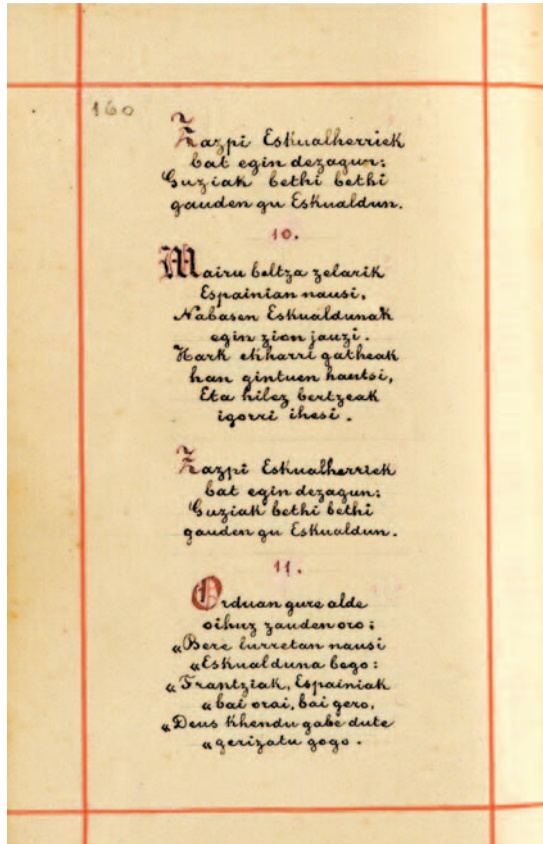 160
Zazpi Eskualherriek
bat egin dezagun:
Guziak bethi bethi
gauden gu Eskualdun.
10.
Mairu beltza zelarik
Espainian nausi,
Nabasen Eskualdunak
egin zion jauzi.
Hark ekharri gatheak
han gintuen hautsi,
Eta hilez bertzeak
igorri ihesi.
Zazpi Eskualherriek
bat egin dezagun:
Guziak bethi bethi
gauden gu Eskualdun.
11.
Orduan gure alde
oihuz zauden oro:
„Bere lurretan nausi
„Eskualduna bego:
„Frantziak, Espainiak
„bai orai, bai gero,
„Deus khendu gabe dute
„gerizatu gogo.